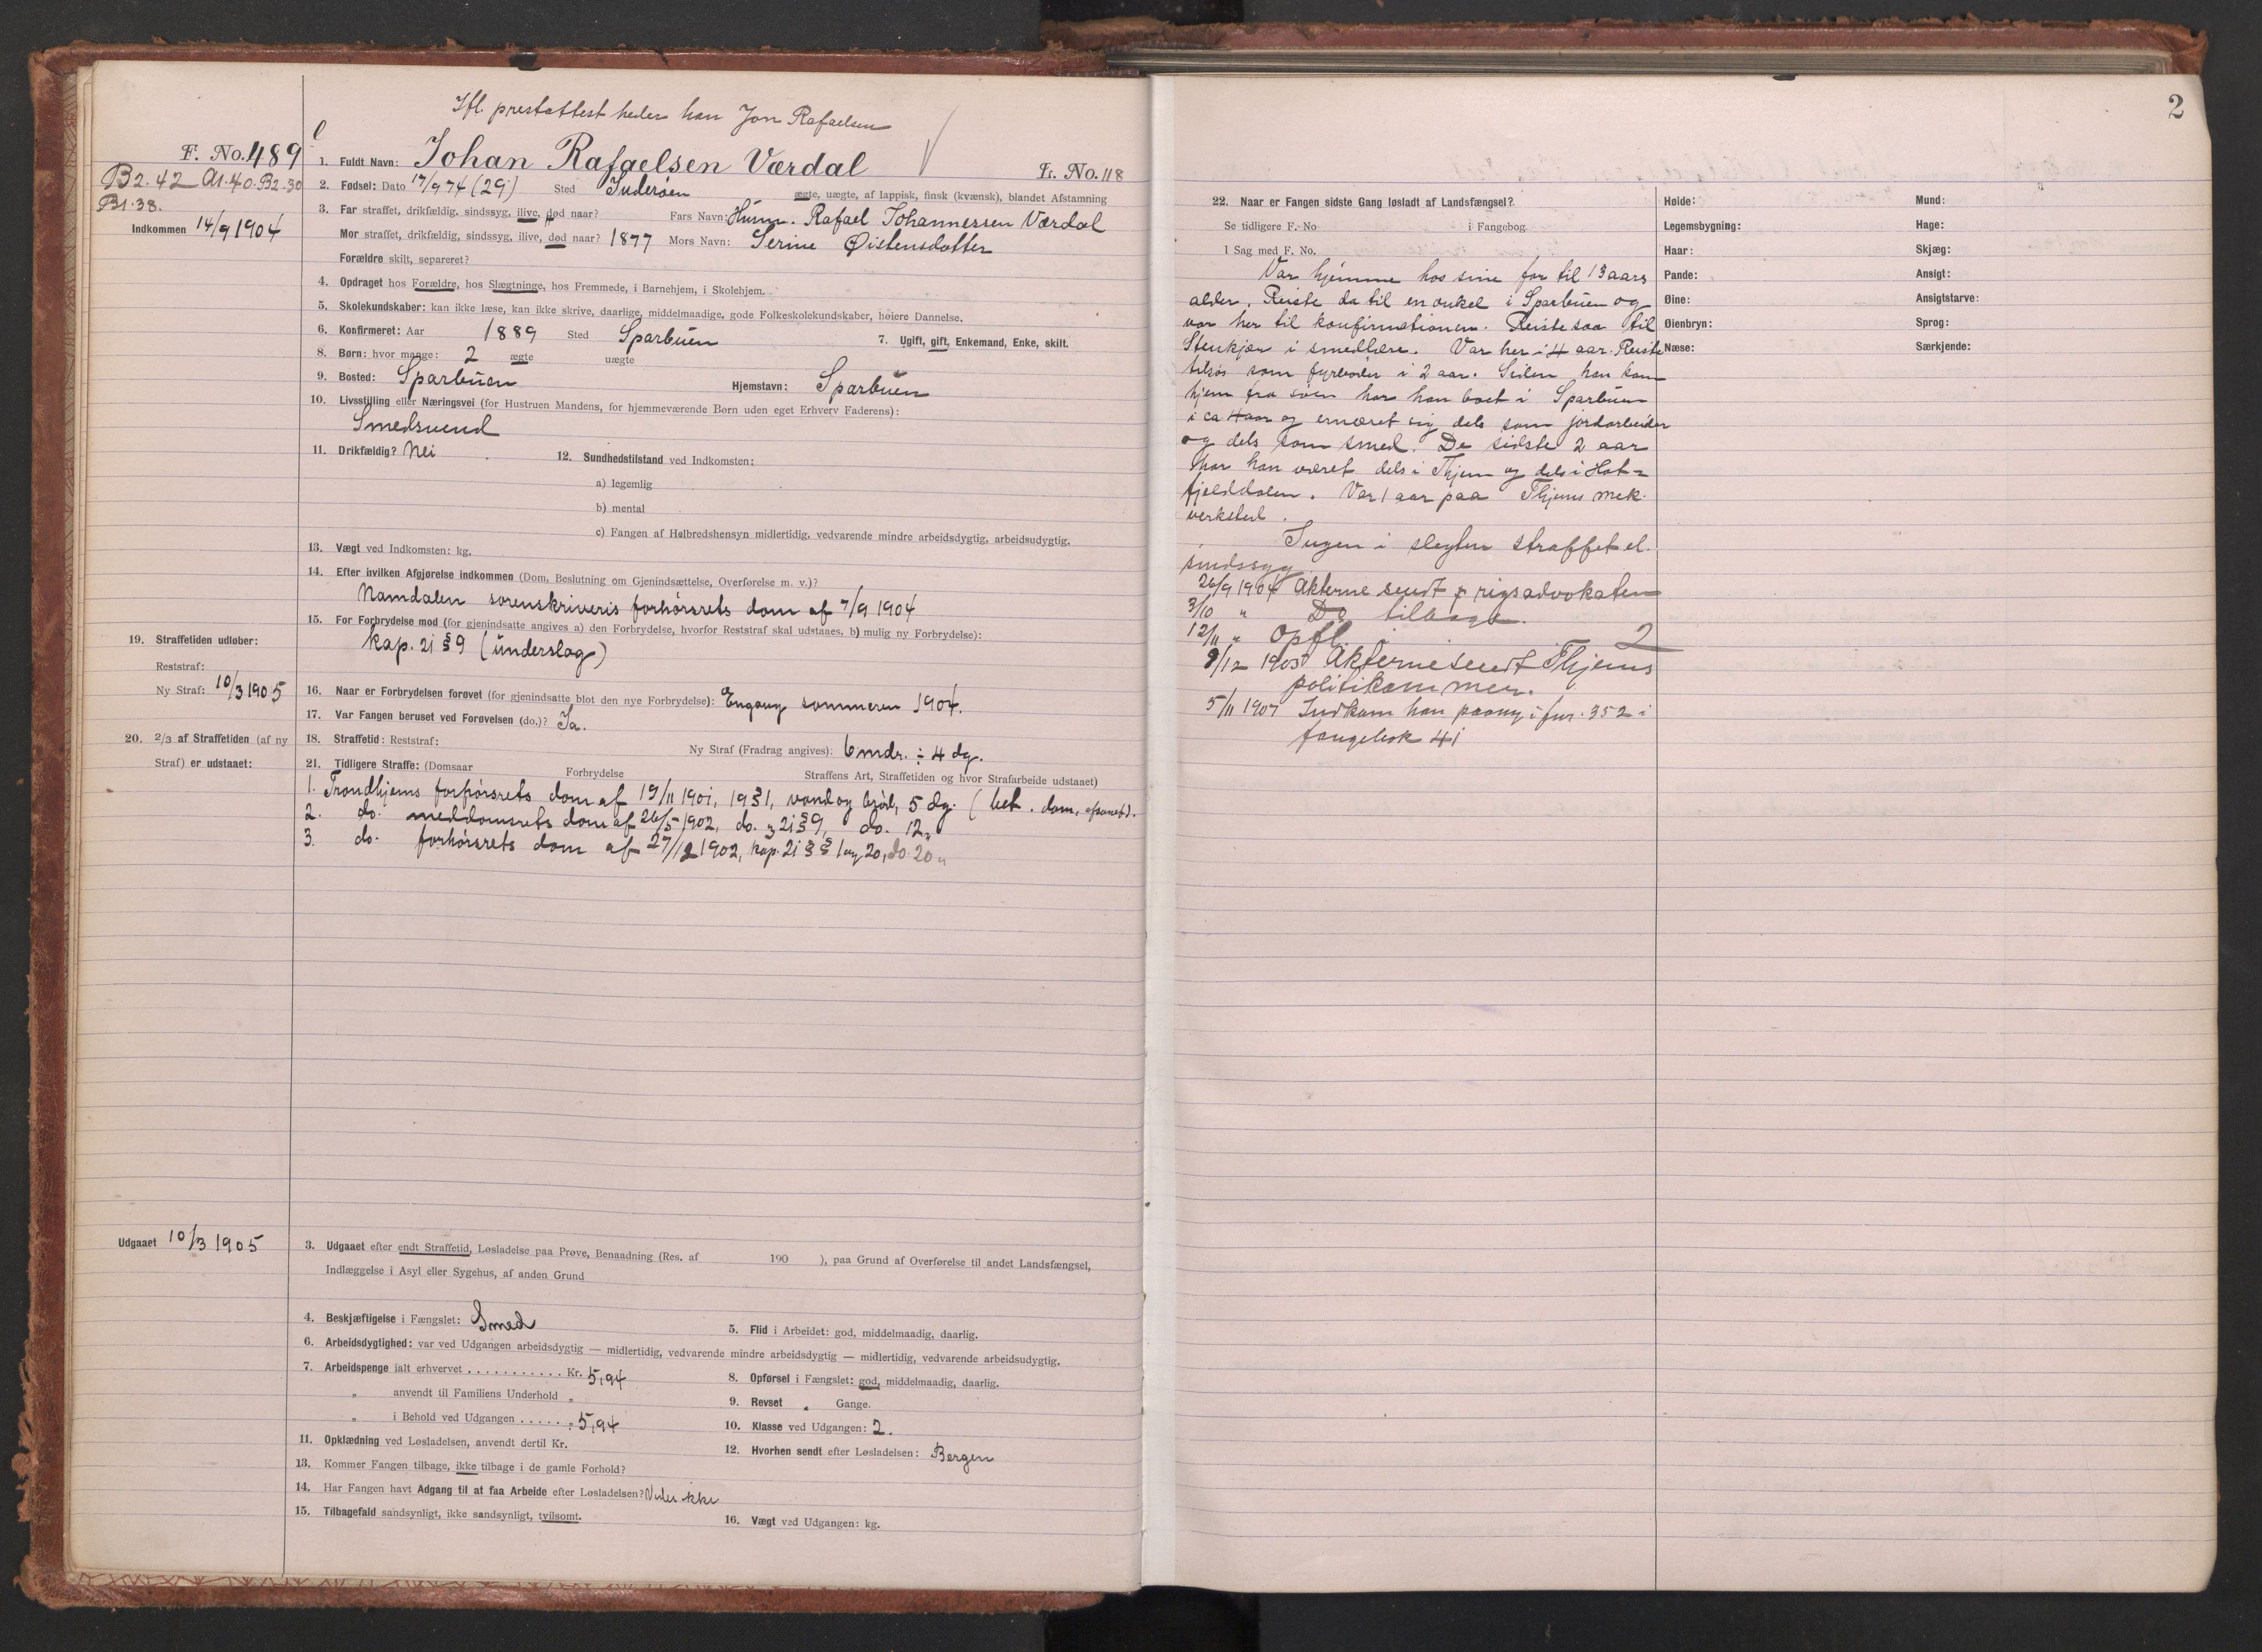 Ifl. prestattest heder han Jon Rafaelsen
F. No. 489
1. Fuldt Navn: Johan Rafaelsen Værdal
L. No. 118
B2.42 A1.40. B2.30
B1.38.
2. Fødsel: Dato 17/9 74 (29) Sted Inderøen ægte, uægte, af lappisk, finsk (kvænsk), blandet Afstamning
Indkommen 14/9 1904
3. Far straffet, drikfældig, sindssyg, ilive, død naar? Fars Navn: Husm. Rafael Johannessen Værdal
Mor straffet, drikfældig, sindssyg, ilive, død naar? 1877 Mors Navn: Serine Øistensdatter
Forældre skilt, separeret?
4. Opdraget hos Forældre, hos Slægtninge, hos Fremmede, i Barnehjem, i Skolehjem.
5. Skolekundskaber: kan ikke læse, kan ikke skrive, daarlige, middelmaadige, gode Folkeskolekundskaber, høiere Dannelse.
6. Konfirmeret: Aar 1889 Sted Sparbuen 7. Ugift, gift, Enkemand, Enke, skilt.
8. Børn: hvor mange: 2 ægte uægte
9. Bosted: Sparbuen Hjemstavn: Sparbuen
10. Livsstilling eller Næringsvei (for Hustruen Mandens, for hjemmeværende Børn uden eget Erhverv Faderens):
Smedsvend
11. Drikfældig? Nei 12. Sundhedstilstand ved Indkomsten:
a) legemlig
b) mental
c) Fangen af Helbredshensyn midlertidig, vedvarende mindre arbeidsdygtig, arbeidsudygtig.
13. Vægt ved Indkomsten: kg.
14. Efter hvilken Afgjørelse indkommen (Dom, Beslutning om Gjenindsættelse, Overførelse m. v.)?
Namdalen sorenskriveris forhørsrets dom af 7/9 1904
15. For Forbrydelse mod (for gjenindsatte angives a) den Forbrydelse, hvorfor Reststraf skal udstaaes, b) mulig ny Forbrydelse):
kap. 21 § 9 (underslag)
19. Straffetiden udløber:
Reststraf:
Ny Straf: 10/3 1905
16. Naar er Forbrydelsen forøvet (for gjenindsatte blot den nye Forbrydelse): Engang sommeren 1904.
17. Var Fangen beruset ved Forøvelsen (do.)? Ja.
20. 2/3 af Straffetiden (af ny
Straf) er udstaaet:
18. Straffetid: Reststraf: Ny Straf (Fradrag angives): 6 mdr. ÷ 4 dg.
21. Tidligere Straffe: (Domsaar Forbrydelse Straffens Art, Straffetiden og hvor Strafarbeide udstaaet)
1. Trondhjems forhørsrets dom af 19/11 1901, 19 § 1, vand og brød, 5 dg. (bet. dom, afsonet).
2. do. meddomsrets dom af 26/5 1902, do. 21 § 9, do. 12 "
3. do. forhørsrets dom af 27/12 1902, kap. 21 §§ 1 og 20, do. 20 "
Udgaaet 10/3 1905
3. Udgaaet efter endt Straffetid, Løsladelse paa Prøve, Benaadning (Res. af 190 ), paa Grund af Overførelse til andet Landsfængsel,
Indlæggelse i Asyl eller Sygehus, af anden Grund
4. Beskjæftigelse i Fængslet: Smed 5. Flid i Arbeidet: god, middelmaadig, daarlig.
6. Arbeidsdygtighed: var ved Udgangen arbeidsdygtig — midlertidig, vedvarende mindre arbeidsdygtig — midlertidig, vedvarende arbeidsudygtig.
7. Arbeidspenge ialt erhvervet . . . . . . . . . . . Kr. 5,94 8. Opførsel i Fængslet: god, middelmaadig, daarlig.
" anvendt til Familiens Underhold " 9. Revset " Gange.
" i Behold ved Udgangen . . . . . " 5,94 10. Klasse ved Udgangen: 2.
11. Opklædning ved Løsladelsen, anvendt dertil Kr. 12. Hvorhen sendt efter Løsladelsen: Bergen
13. Kommer Fangen tilbage, ikke tilbage i de gamle Forhold?
14. Har Fangen havt Adgang til at faa Arbeide efter Løsladelsen? Vides ikke
15. Tilbagefald sandsynligt, ikke sandsynligt, tvilsomt. 16. Vægt ved Udgangen: kg.
2
22. Naar er Fangen sidste Gang løsladt af Landsfængsel?
Se tidligere F. No i Fangebog
I Sag med F. No.
Var hjemme hos sine for til 13 aars
alder. Reiste da til en onkel i Sparbuen og
var her til konfirmationen. Reiste saa til
Stenkjær i smedlære. Var her i 4 aar. Reiste
tilsøs som fyrbøder i 2 aar. Siden han kom
hjem fra søen har han boet i Sparbuen
i ca 4 aar og ernæret sig dels som jordarbeider
og dels som smed. De sidste 2 aar
har han været dels i Thjem og dels i Hat-
fjelddalen. Var 1 aar paa Thjems mek.
verksted.
Ingen i slegten straffet el.
sindssyg.
26/9 1904 Akterne sendt rigsadvokaten
3/10 " Do tilbage.
12/11 " Opfl. i 2
9/12 1905 Akterne sendt Thjems
politikammer.
5/11 1907 Indkom han paany i fnr. 352 i
fangebok 41
Høide: Mund:
Legemsbygning: Hage:
Haar: Skjæg:
Pande: Ansigt:
Øine: Ansigtsfarve:
Øienbryn: Sprog:
Næse: Særkjende: